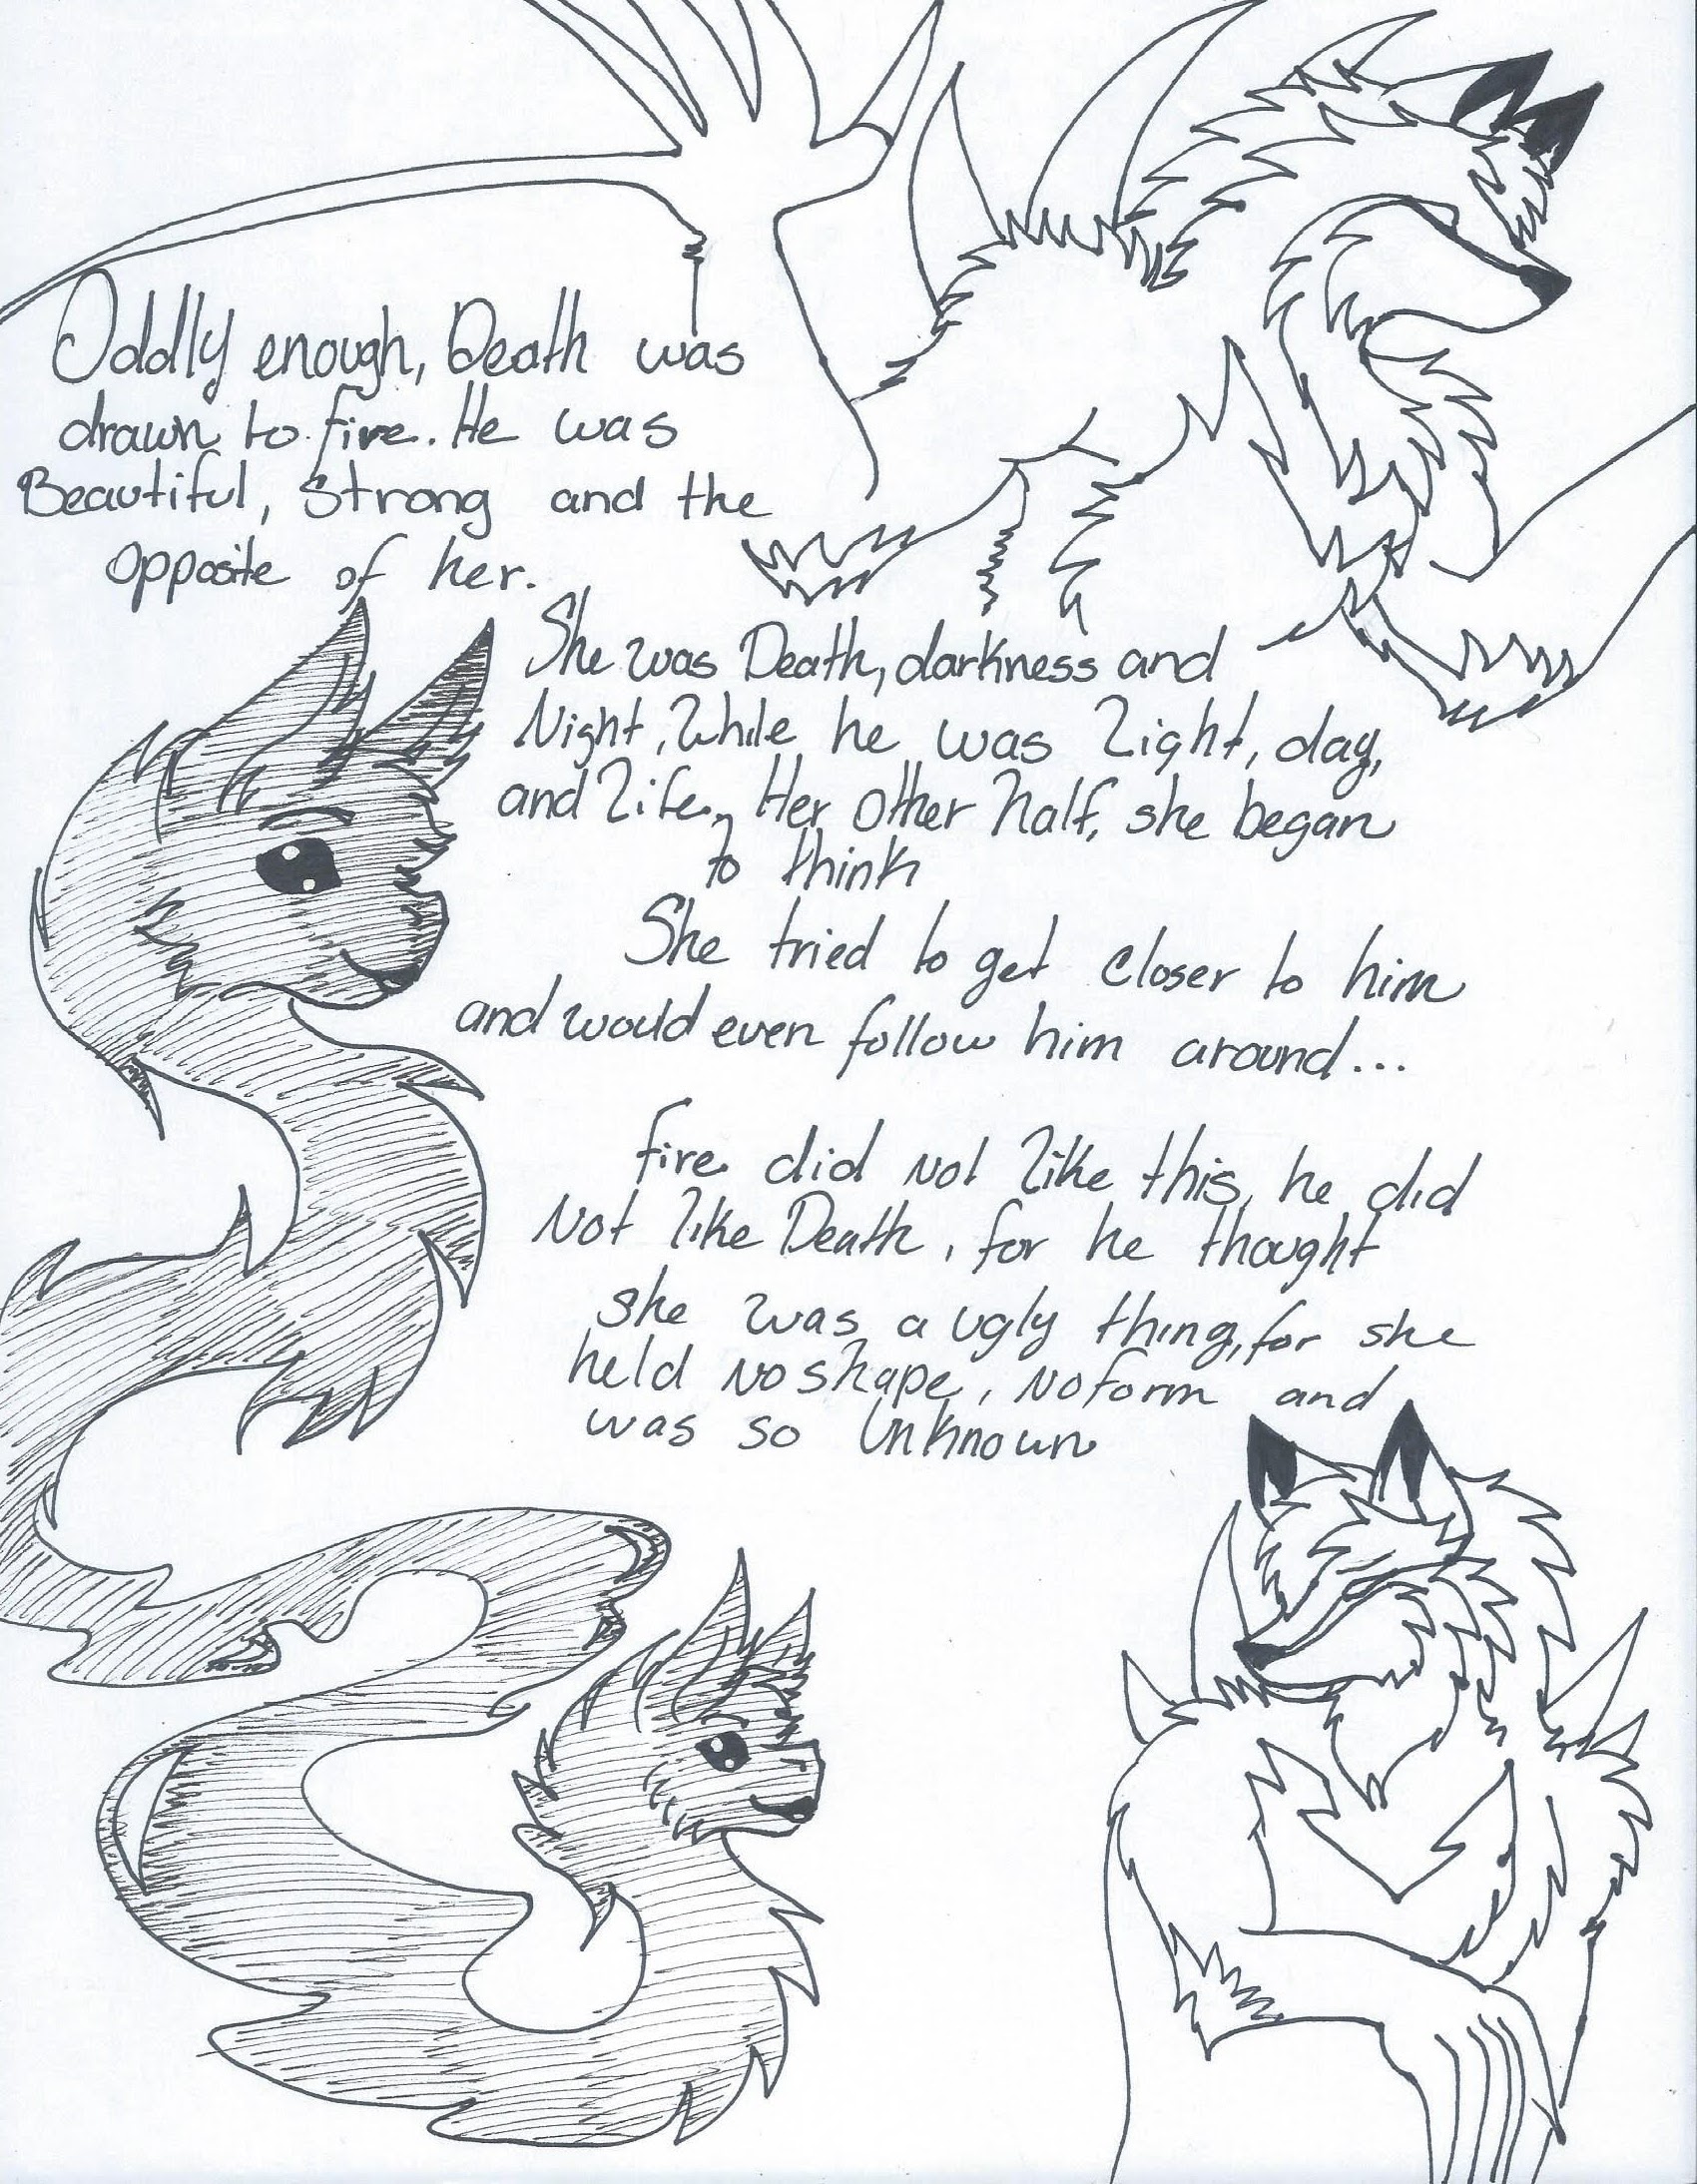 Oddly enough, Death was
drawn to fire. He was
Beautiful, Strong and the
opposite of her.
She was Death, darkness and
Night, While he was Light, day,
and Life, Her other half, she began
to think
She tried to get closer to him
and would even follow him around...
fire did not like this, he did
Not like Death, for he thought
she was a ugly thing, for she
held No shape, No form and
was so Unknown